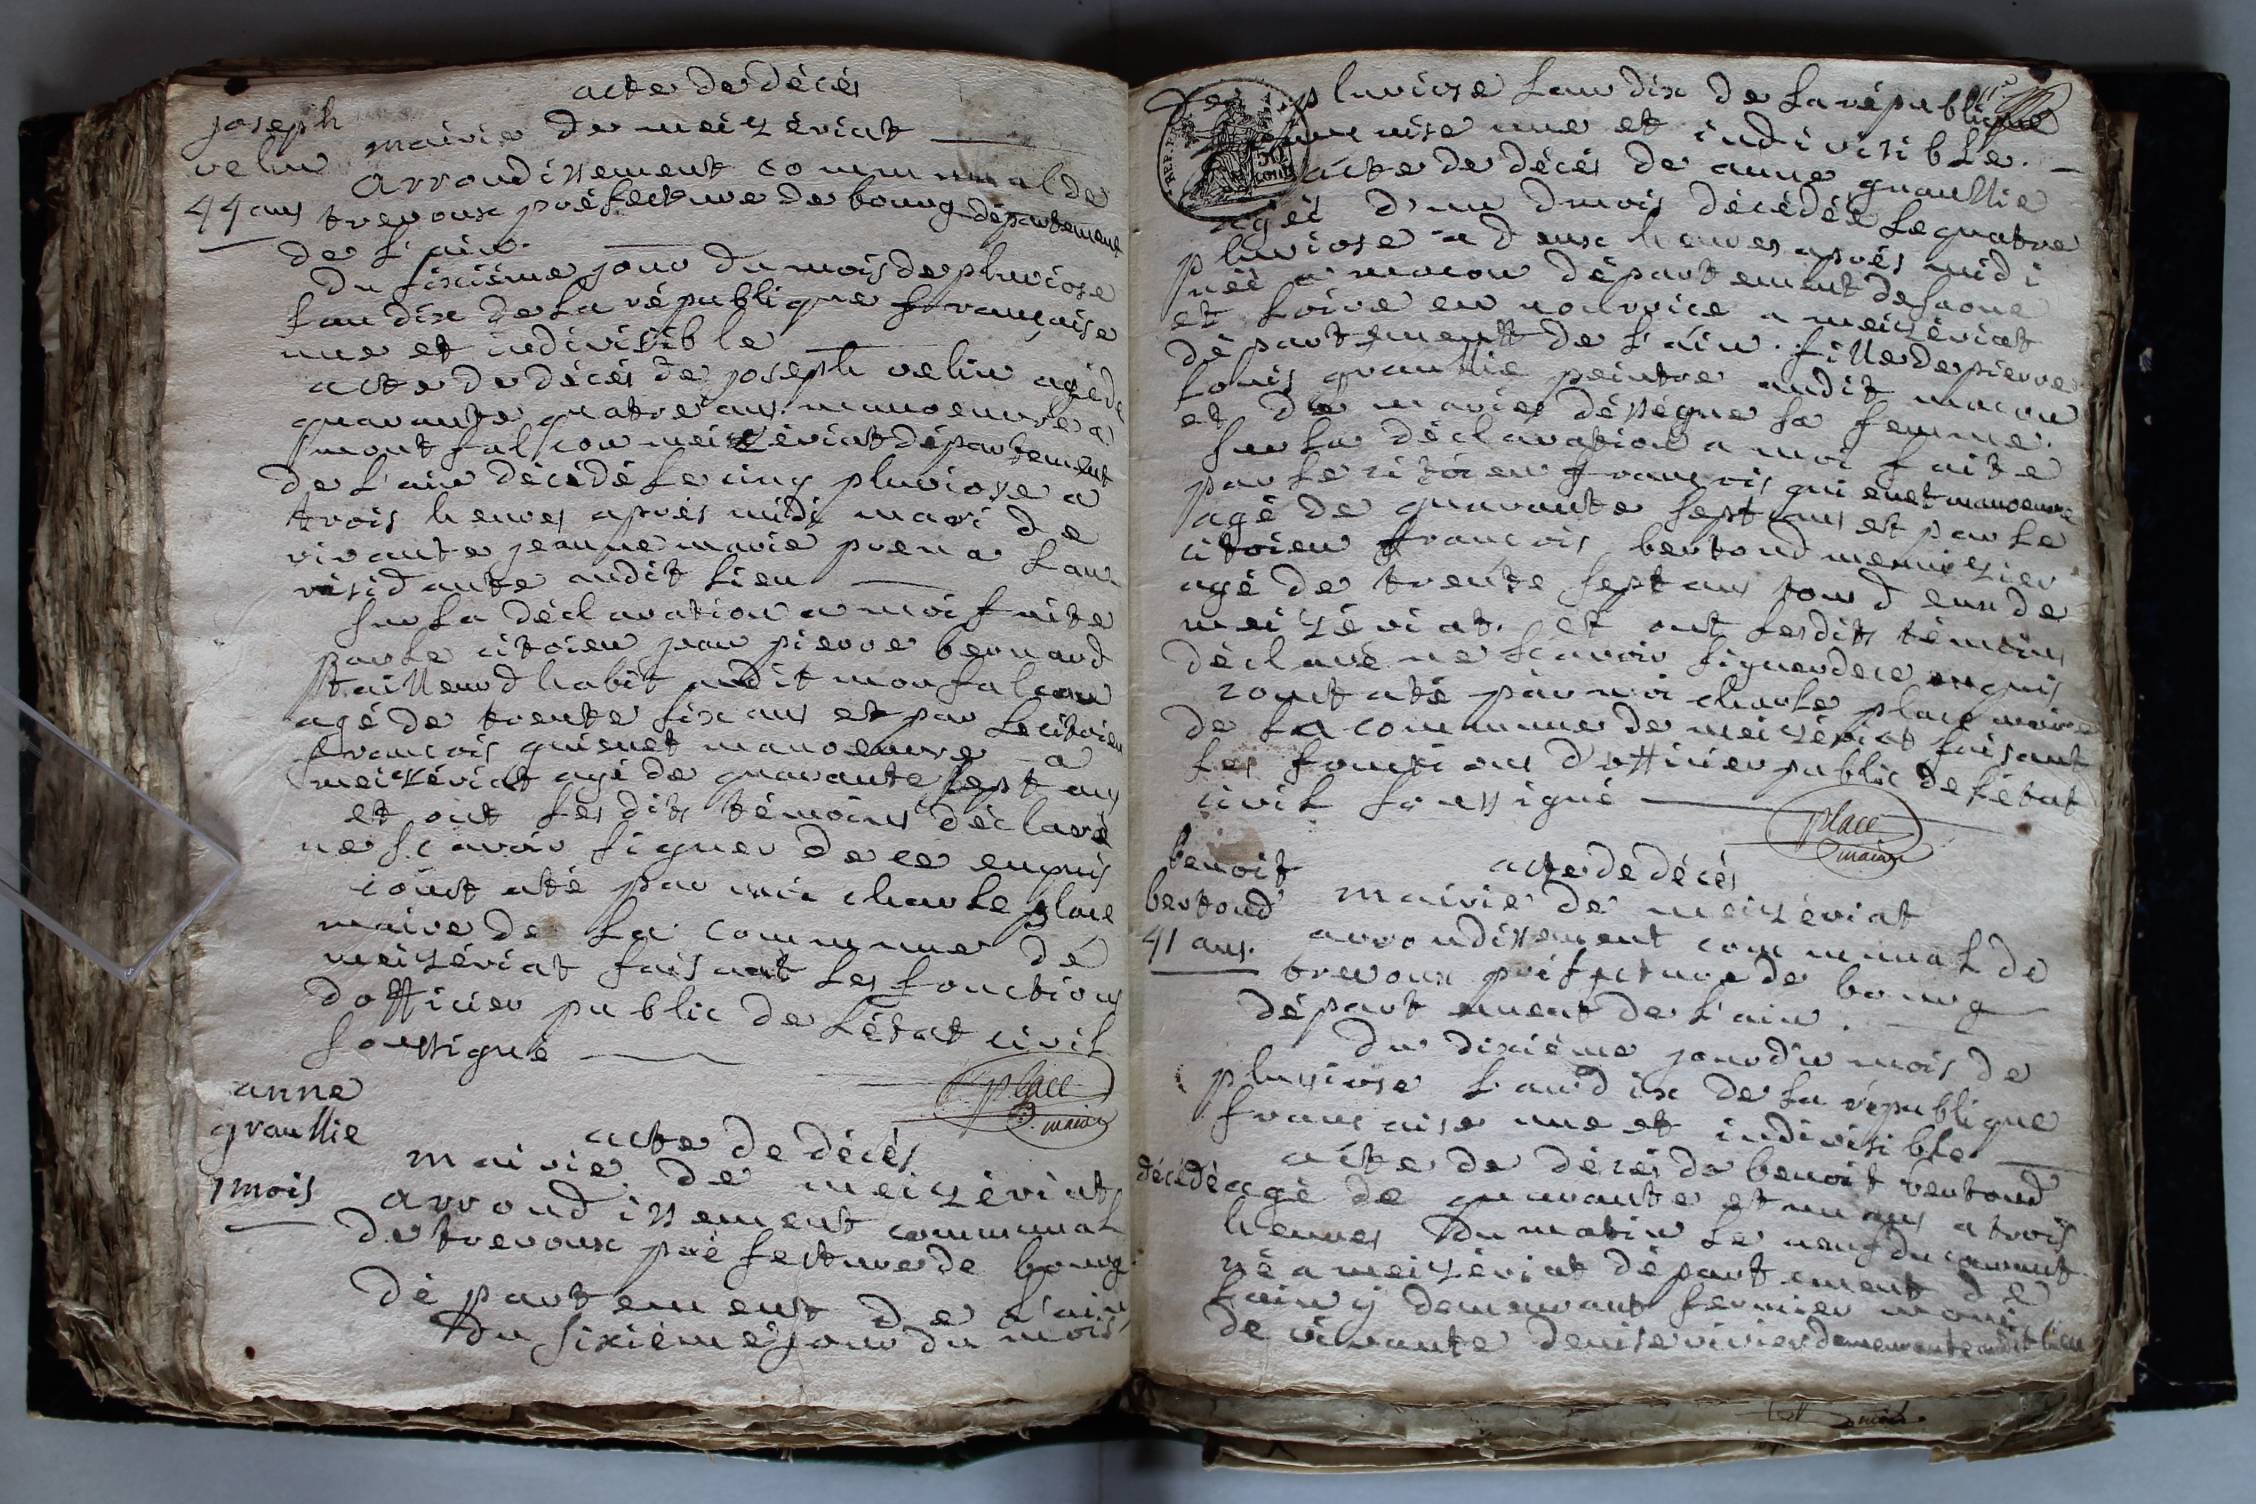 acte de décés
joseph
velin
44 ans
mairie de meizériat
arrondissement communal de
trevoux préfecture de bourg département
de l'ain.
Du sixiéme jour du mois de pluviose
l'an dix de la république française
une et indivisible
acte de décés de joseph velin agé de
quarante quatre ans. manoeuvre a
montfalcon meizériat département
de l'ain décédé le cinq pluviose a
trois heures aprés midi mari de
vivante jeanne marie
residante audit lieu
sur la déclaration a moi faite
par le citoien jean pierre bernard
tailleur d'habit audit monfalcon
agé de trente six ans et par le citoien
francois guienet manoeuvre a
meizériat agé de quarante sept ans
et ont lesdits témoins déclaré
ne scavoir signer de ce enquis
constaté par moi charle place
maire de la commune de
meizériat faisant les fonctions
d'officier public de l'état civil
soussigné
place
maire
anne
graullie
1 mois
acte de décés
mairie de meizériat
arrondissement communal
de trevoux préfecture de bourg
département de l'ain
Du sixiéme jour du mois
De pluviose l'an dix de la république
française une et indivisible.
REP. FRA
50
cent
acte de décés de anne graullie
agée d'un d mois décédée le quatre
pluviose a deux heures aprés midi
née a macon département de saone
et loire en nourice a meizériat
département de l'ain. fille de pierre
louis graullie peintre audit macon
et de marie déségne sa femme.
sur la déclaration a moi faite
par le citoien françois guienet manoeuvre
agé de quarante sept ans et par le
citoien françois bertoud menuizier
agé de trente sept ans tous deux de
meizériat. et ont lesdits témoins
déclaré ne scavoir signer de ce enquis
constaté par moi charle place maire
de la commune de meizériat faisant
les fonctions d'officier public de l'état
civil soussigné
place
maire
benoit
bertoud
41 ans.
acte de décés
mairie de meizériat
arrondissement communal de
trevoux préfecture de bourg
département de l'ain.
du dixiéme jour du mois de
pluviose l'an dix de la république
française une et indivisible
acte de décés de benoit bertoud
décédé agé de quarante et un ans a trois
heures du matin le neuf du courant
né a meizériat département de
l'ain y demeurant fermier mari
de vivante denise rivier demeurante audit lieu